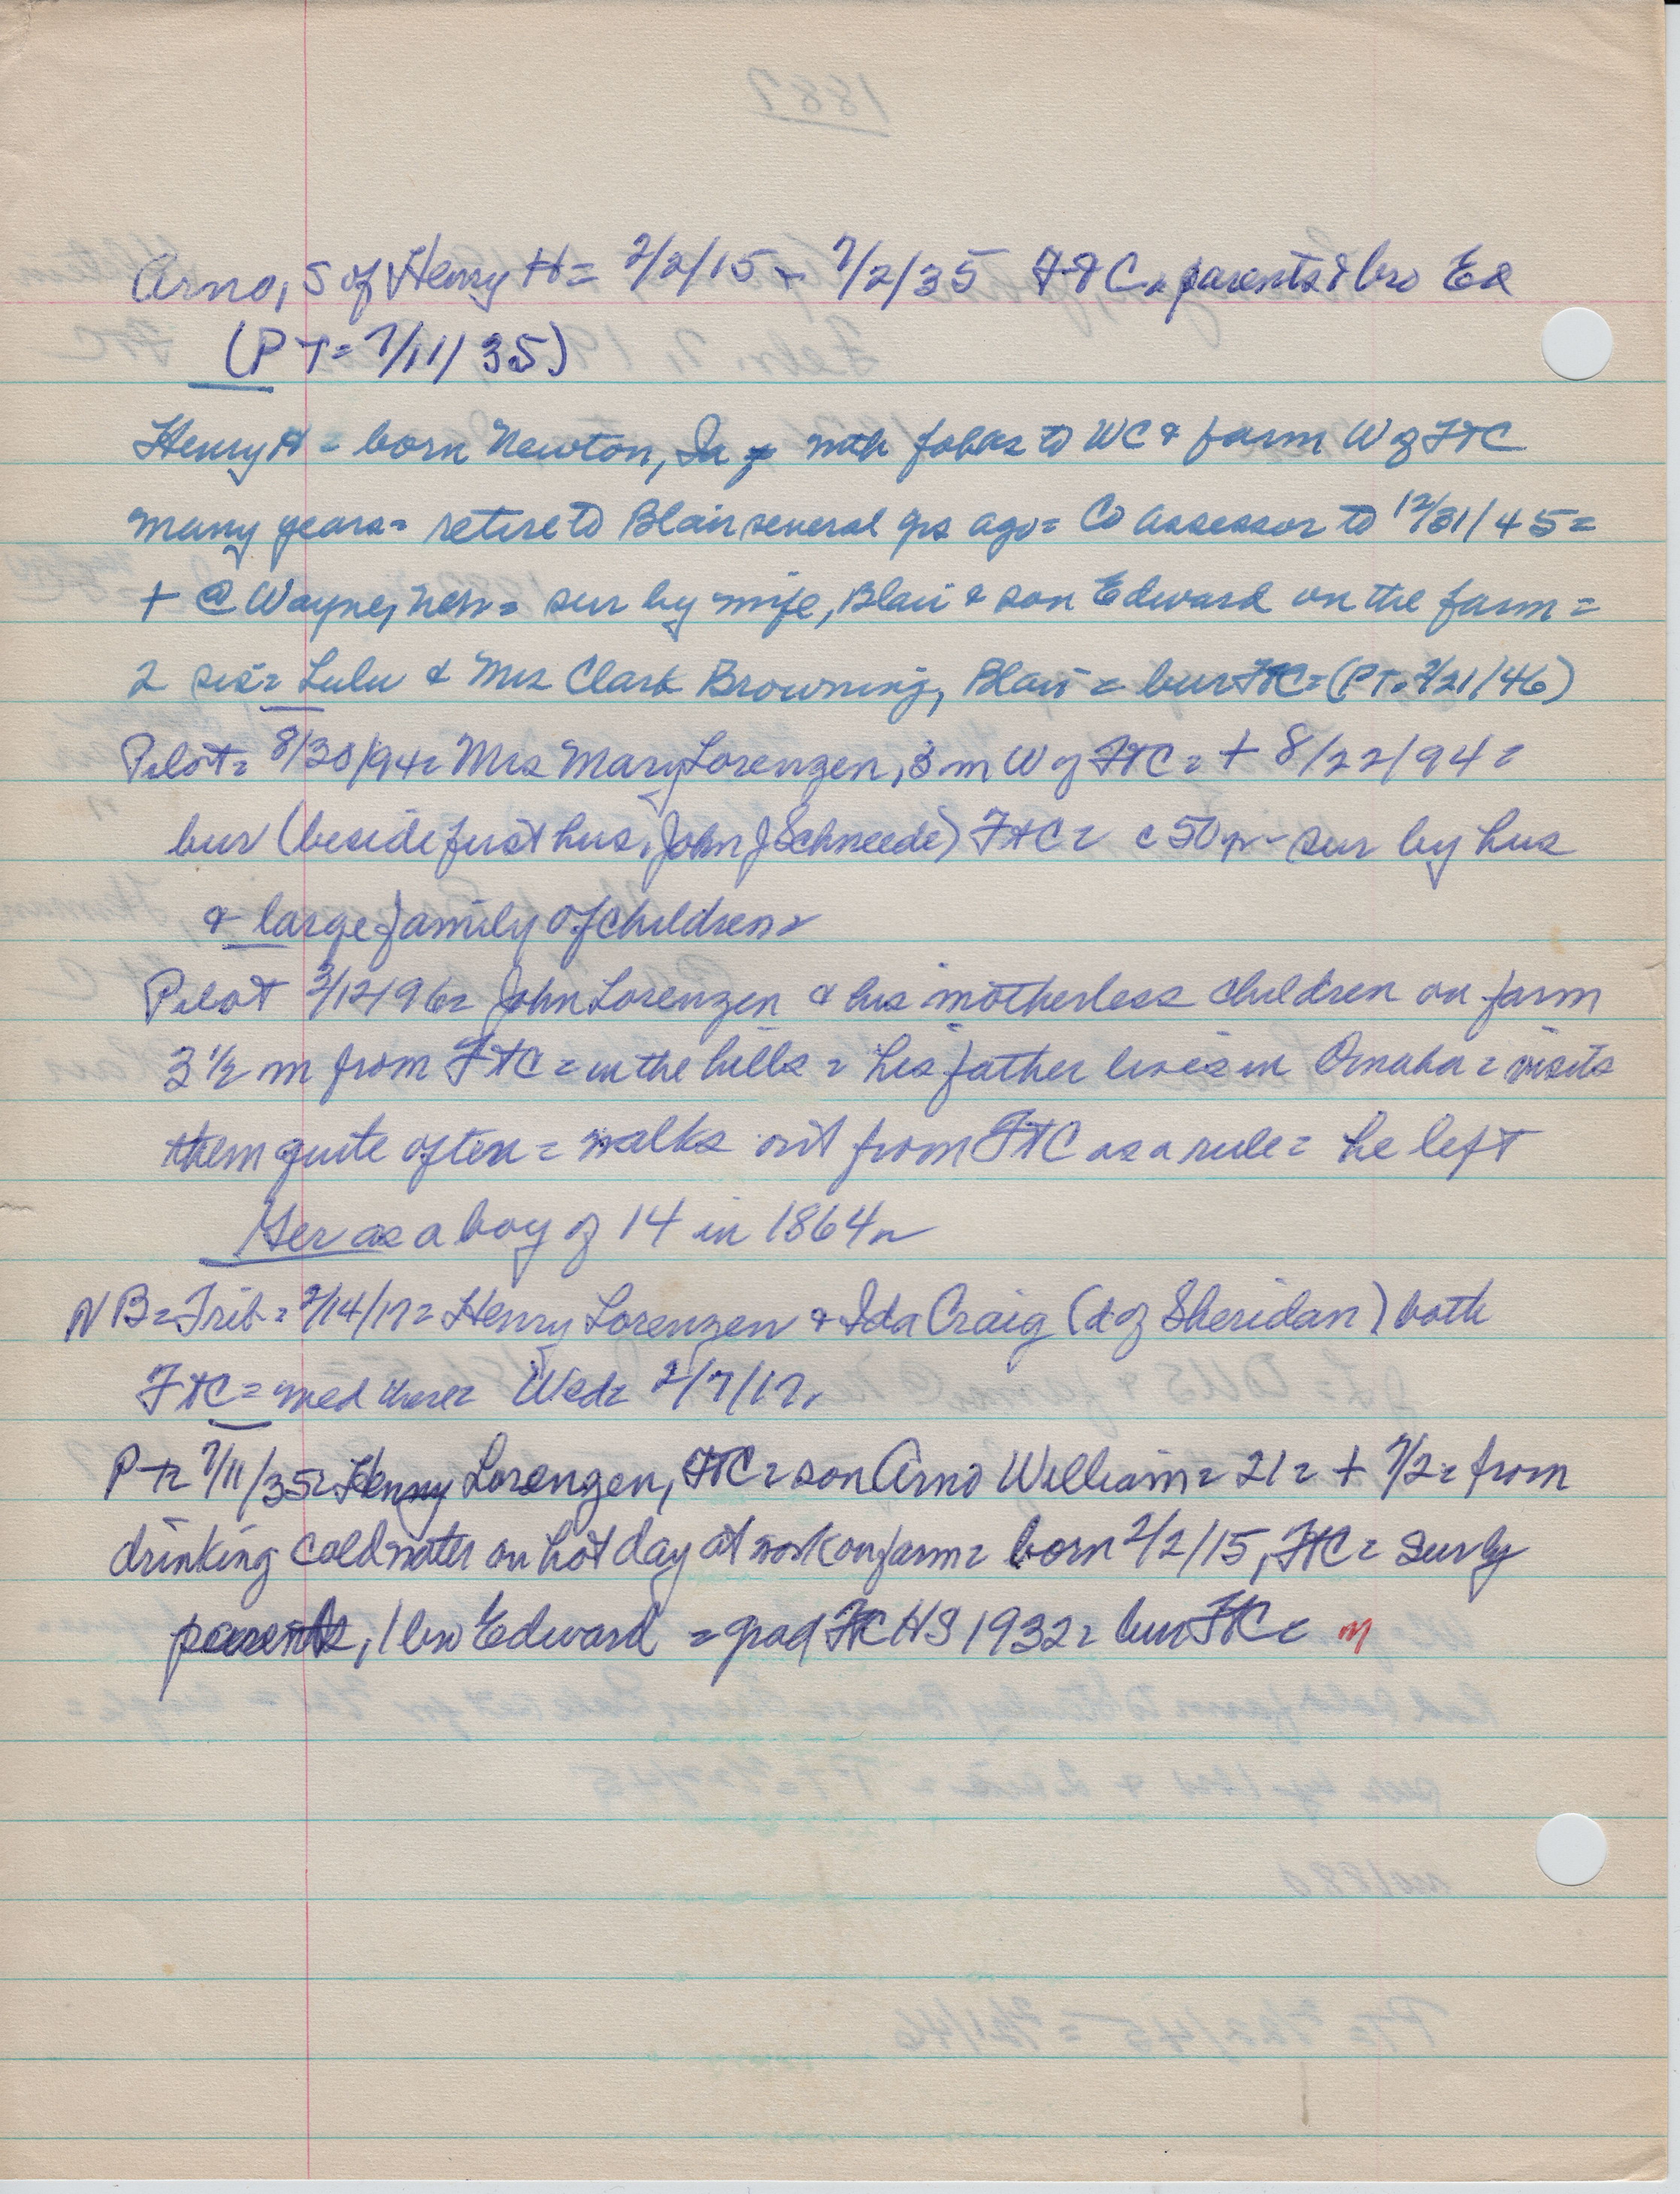 Arno, S of Henry H = 2/2/15 - 7/2/35 FtC = parents & bro Ed
(PT = 7/11/35)
Henry H = born Newton, Ia with folks to WC & farm W of FtC
many years = retire to Blair several yrs ago = Co Assessor to 12/31/45 =
+ @ Wayne, Neb = sur by wife, Blair & son Edward on the farm =
2 sis = Lulu & Mrs Clark Browning, Blair = bur FtC = (PT = /21/46)
Pilot = 8/30/94 = Mrs Mary Lorenzen, 3 m W of FtC = + 8/22/94 =
bur (beside first hus, John J Schneede) FtC = c 50 yr - sur by hus
& large family of children =
Pilot 3/12/96 = John Lorenzen & his motherless children on farm
3 1/2 m from FtC = in the hills = his father lives in Omaha = visits
them quite often = walks out from FtC as a rule = he left
Ger as a boy of 14 in 1864 =
NB = Trib = 2/14/17 = Henry Lorenzen & Ida Craig (d of Sheridan) both
FtC = med there Wed = 2/7/17.
PT = 7/11/35 = Henry Lorenzen, FtC = son Arno William = 21 = + 7/2 = from
drinking cold water on hot day at work on farm = born 2/2/15, FtC = sur by
parents, 1 bro Edward = grad FtC HS 1932 = bur FtC =
1887